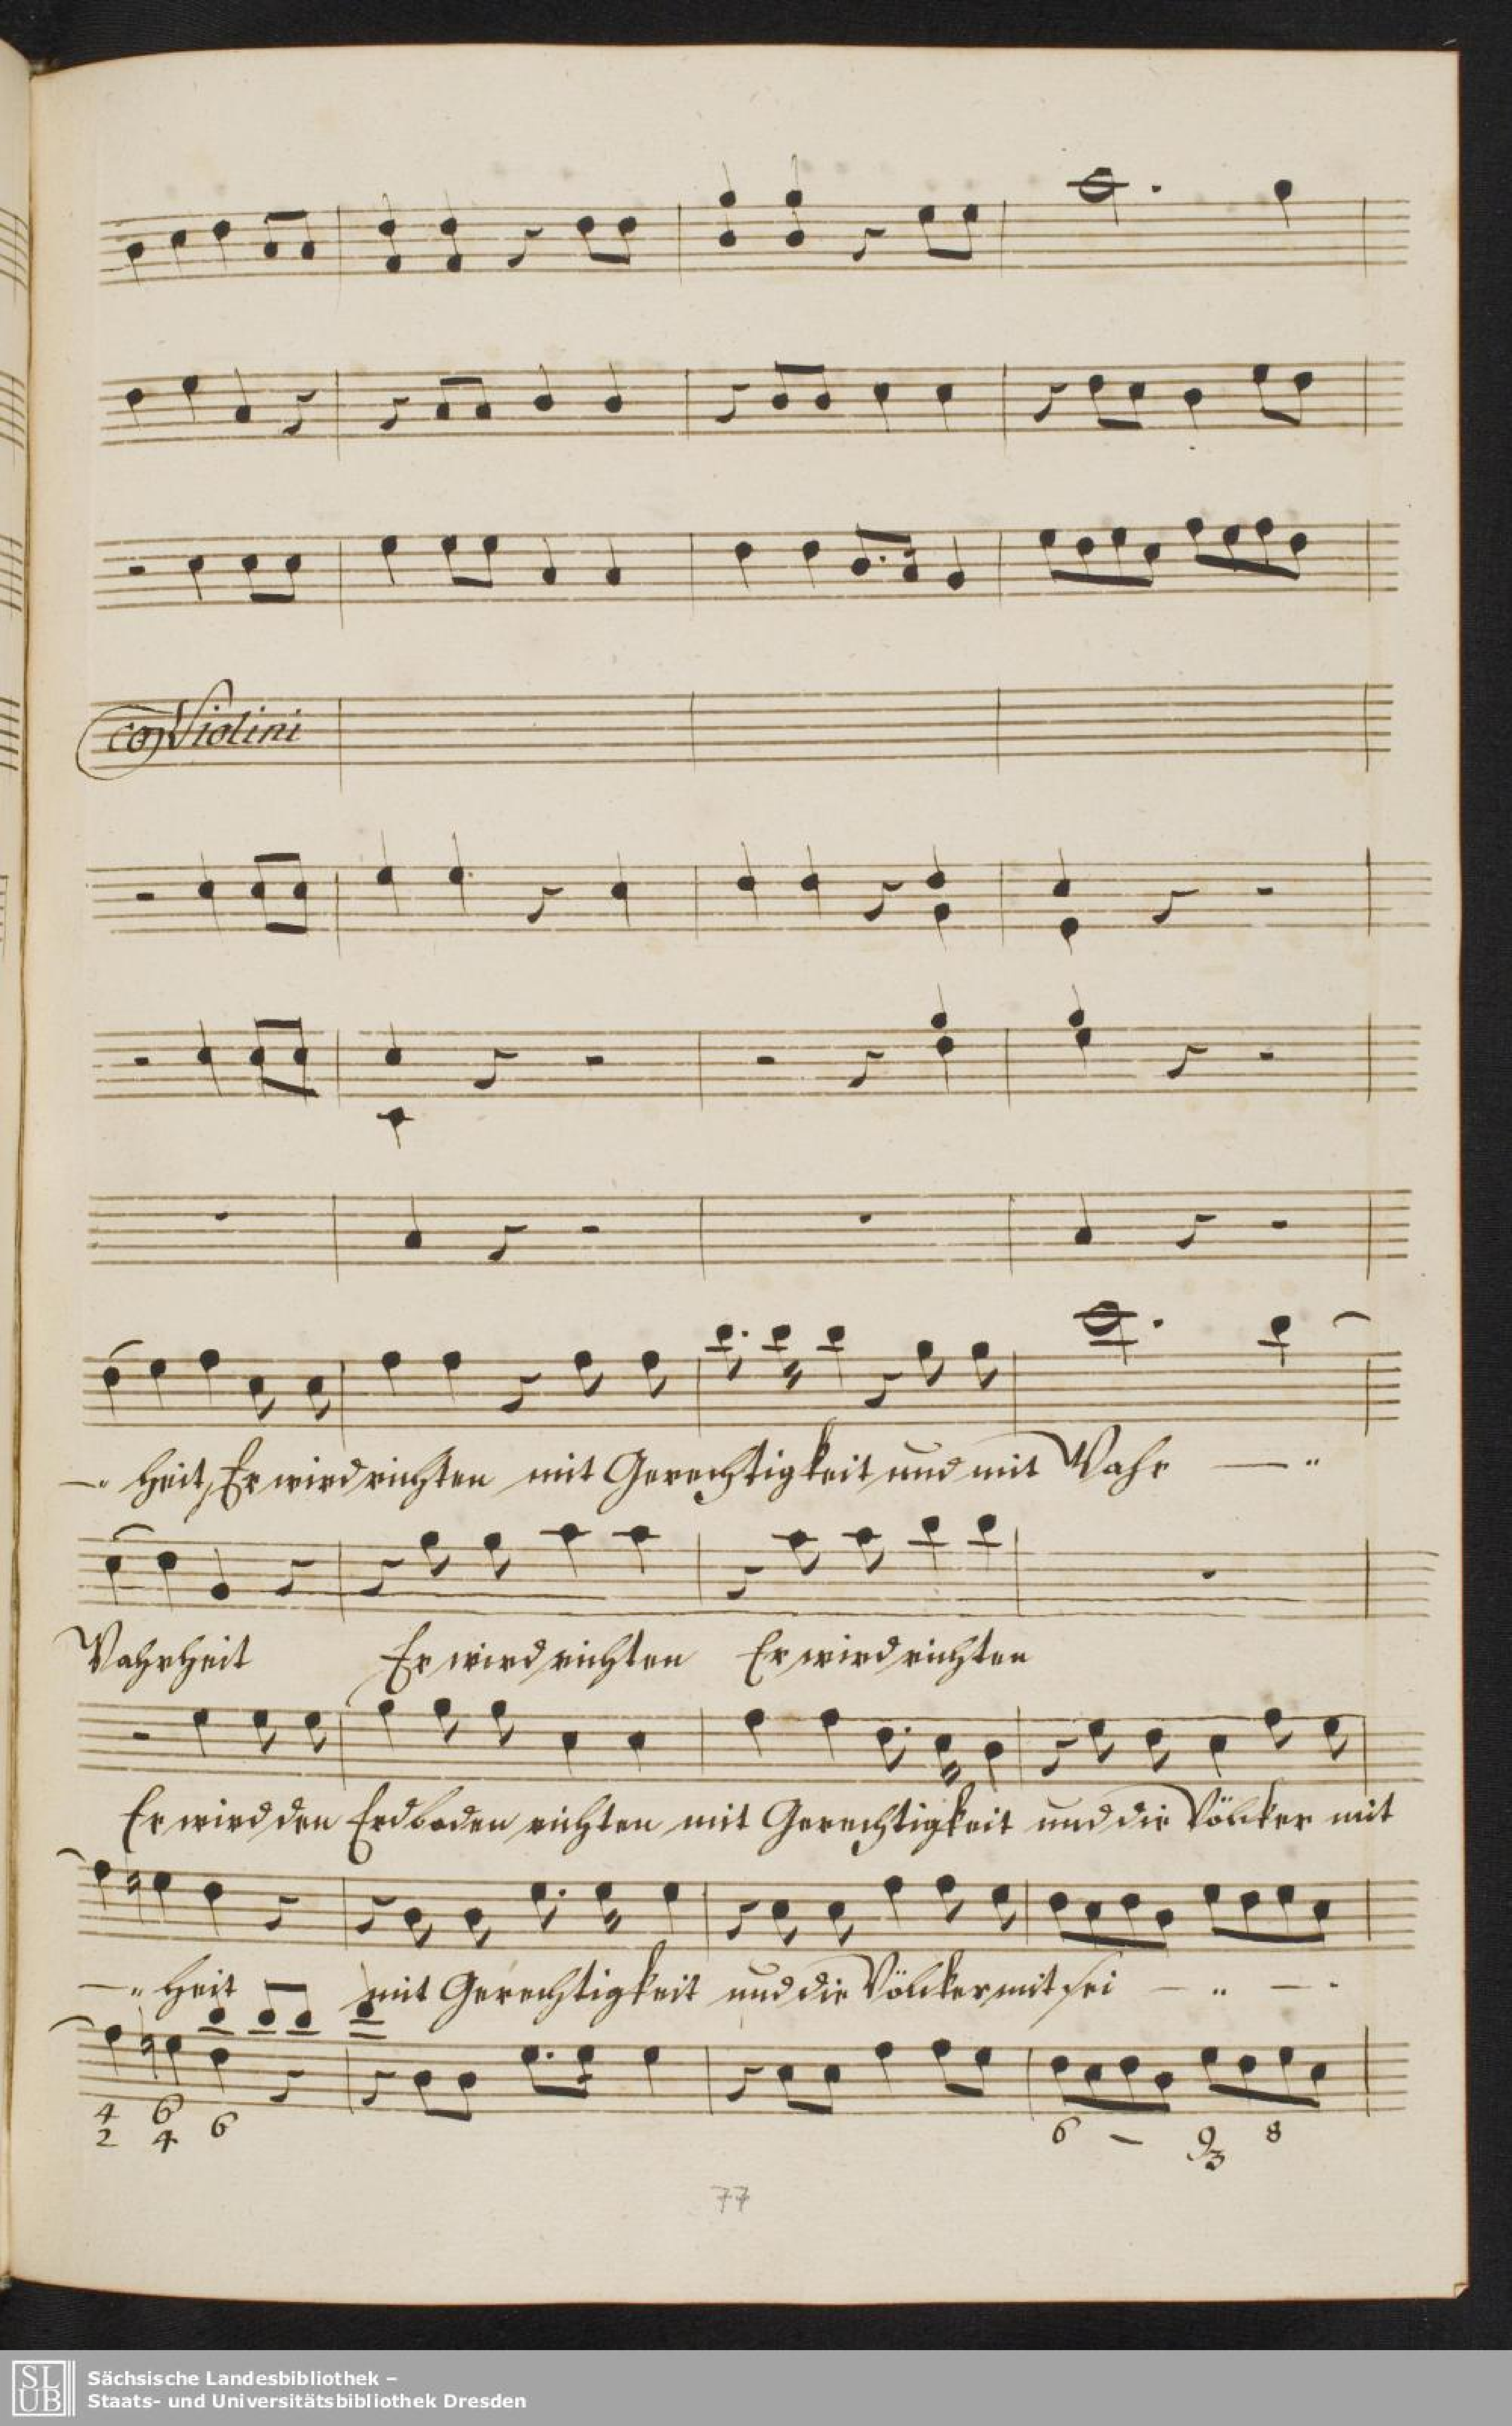 con Violini
— heit, Er wird richten mit Gerechtigkeit und mit Wahr —
Wahrheit Er wird richten Er wird richten
Er wird den Erdboden richten mit Gerechtigkeit und die Völcker mit
— heit mit Gerechtigkeit und die Völcker mit sei — —
4 6 6 6 — 9 8
2 4 3
77
SLUB
Sächsische Landesbibliothek –
Staats- und Universitätsbibliothek Dresden